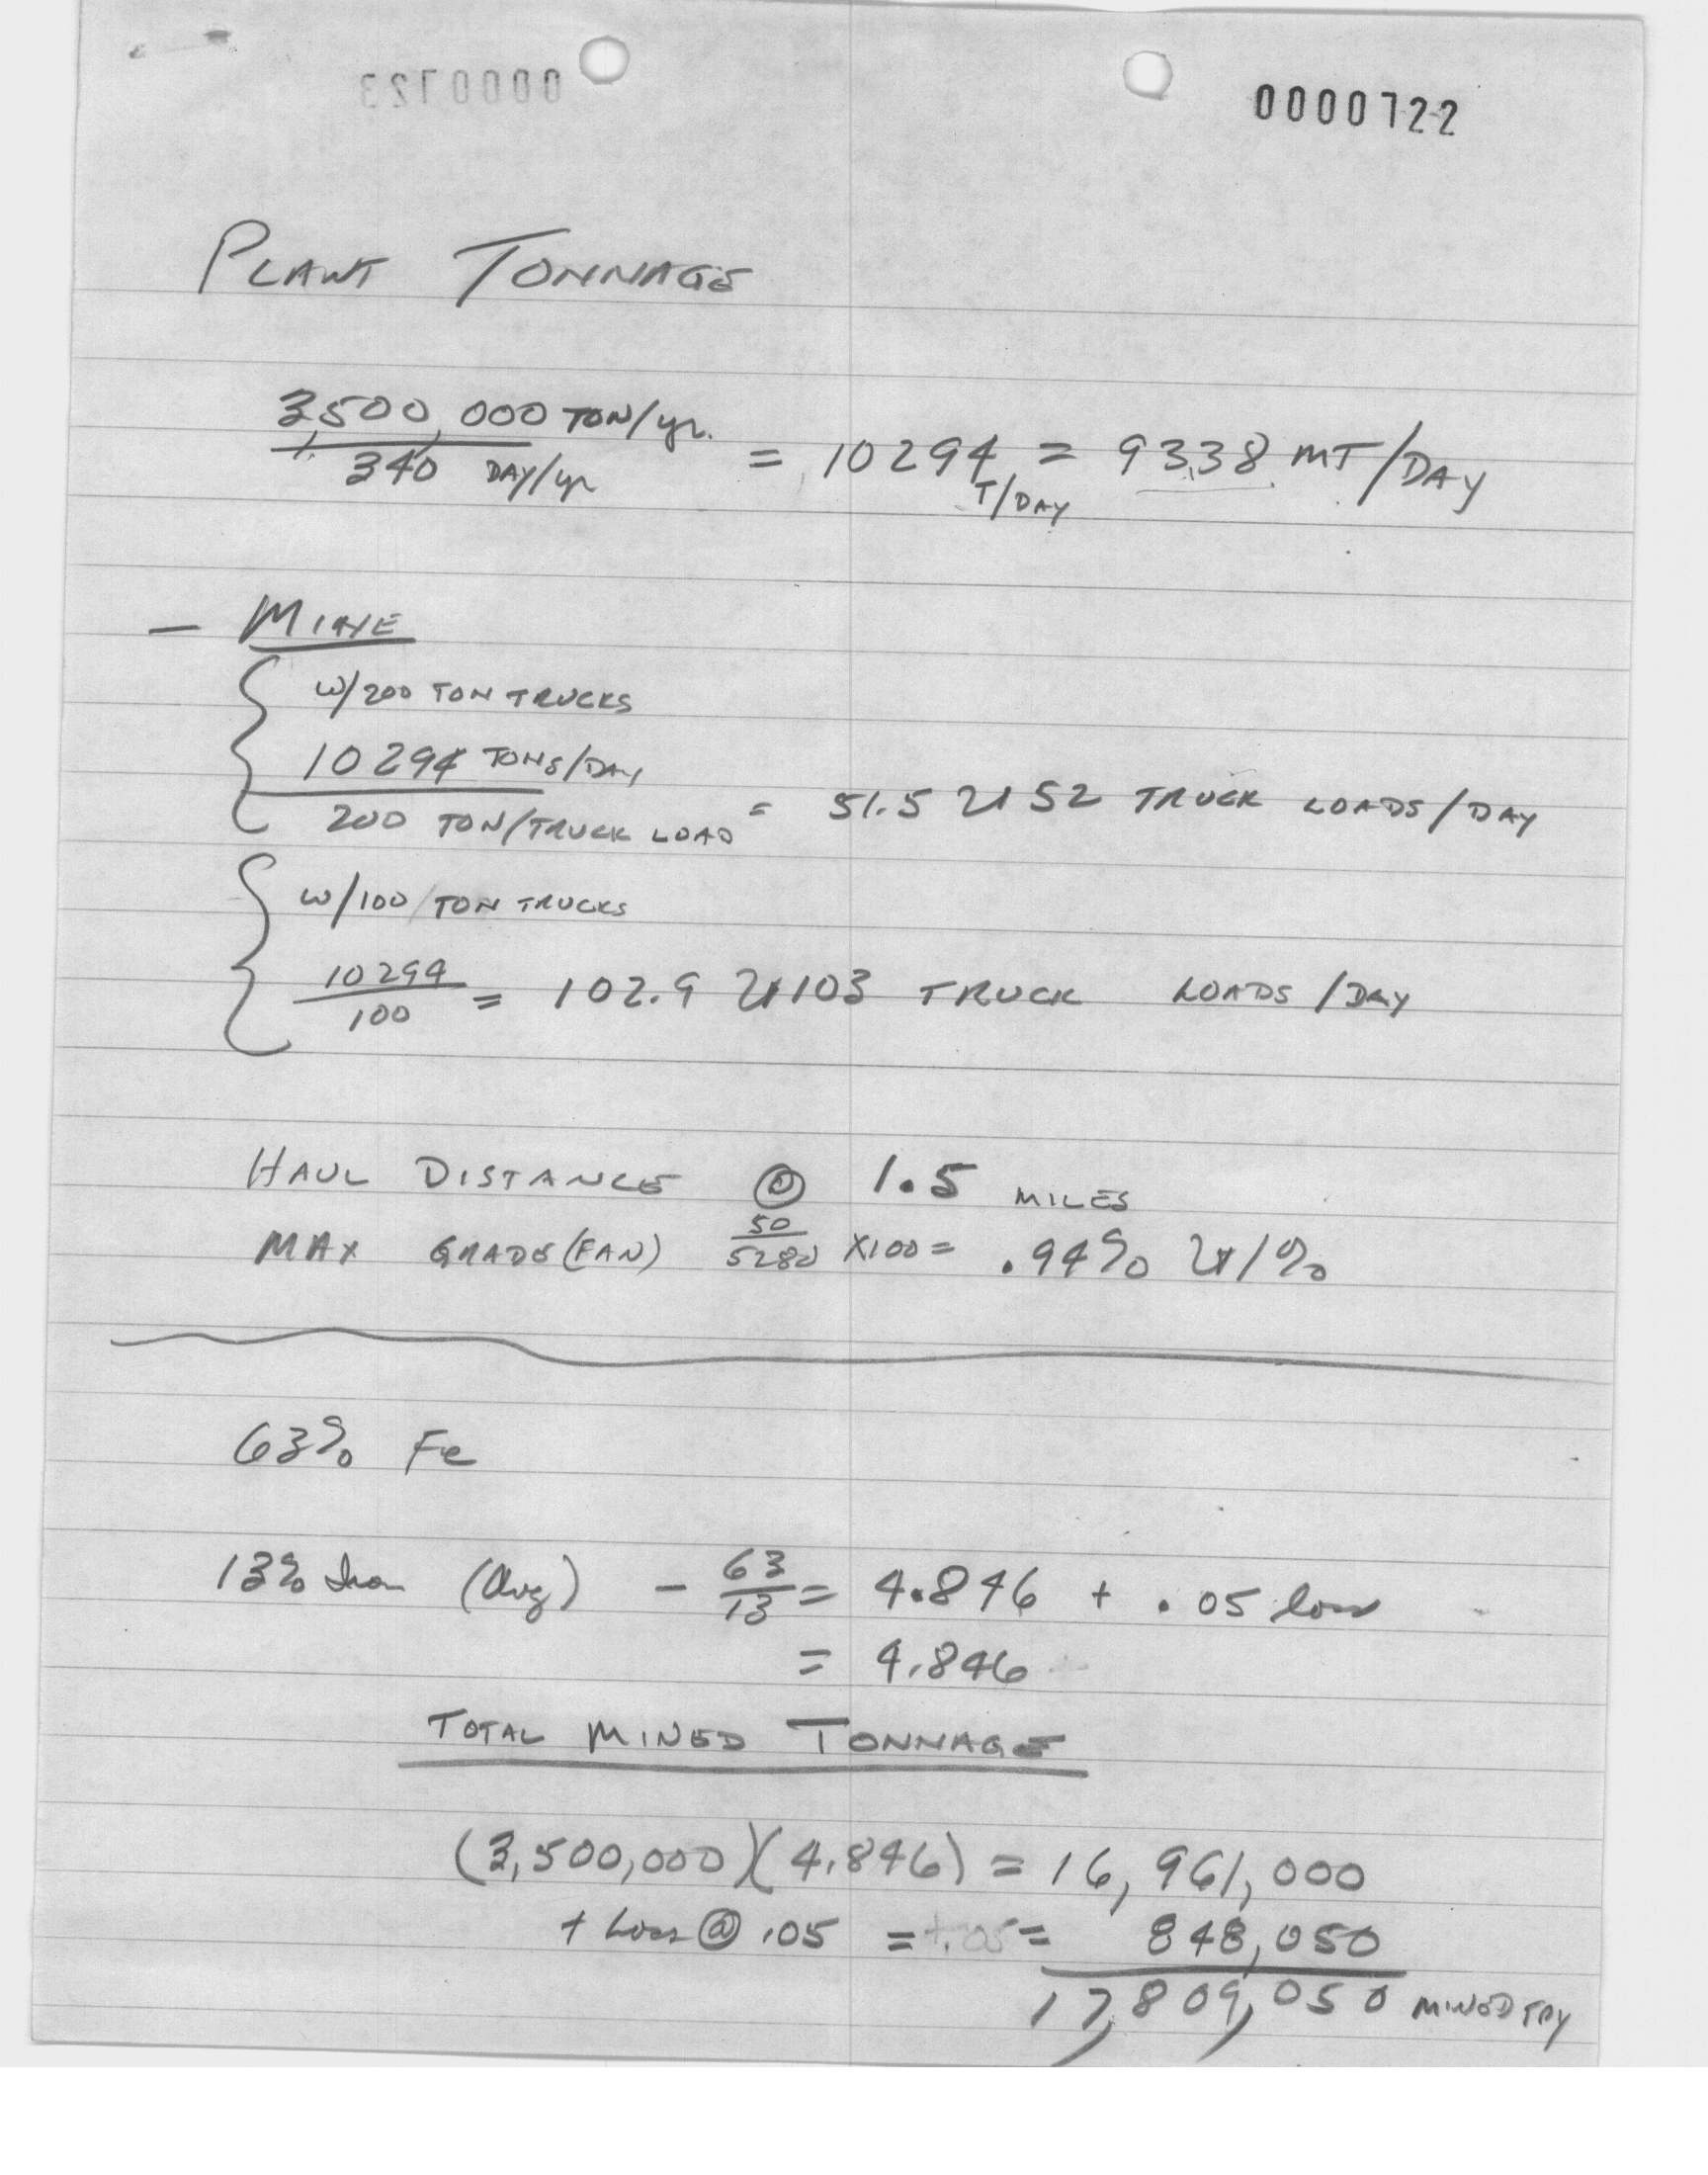 0000723
0000722
PLANT TONNAGE
3,500,000 TON/yr.
340 DAY/yr
= 10294 T/DAY = 9338 MT/DAY
— MINE
W/200 TON TRUCKS
10294 TONS/DAY
200 TON/TRUCK LOAD
= 51.5 ≈ 52 TRUCK LOADS/DAY
W/100 TON TRUCKS
10294
100
= 102.9 ≈ 103 TRUCK LOADS/DAY
HAUL DISTANCE @ 1.5 MILES
MAX GRADE (FAN) 50/5280 X100 = .94% ≈ 1%
63% Fe
13% Iron (Avg) - 63/13 = 4.846 + .05 loss
= 4.846
TOTAL MINED TONNAGE
(3,500,000)(4.846) = 16,961,000
+ Loss @ .05 = +.05 = 848,050
17,809,050 MINED TPY